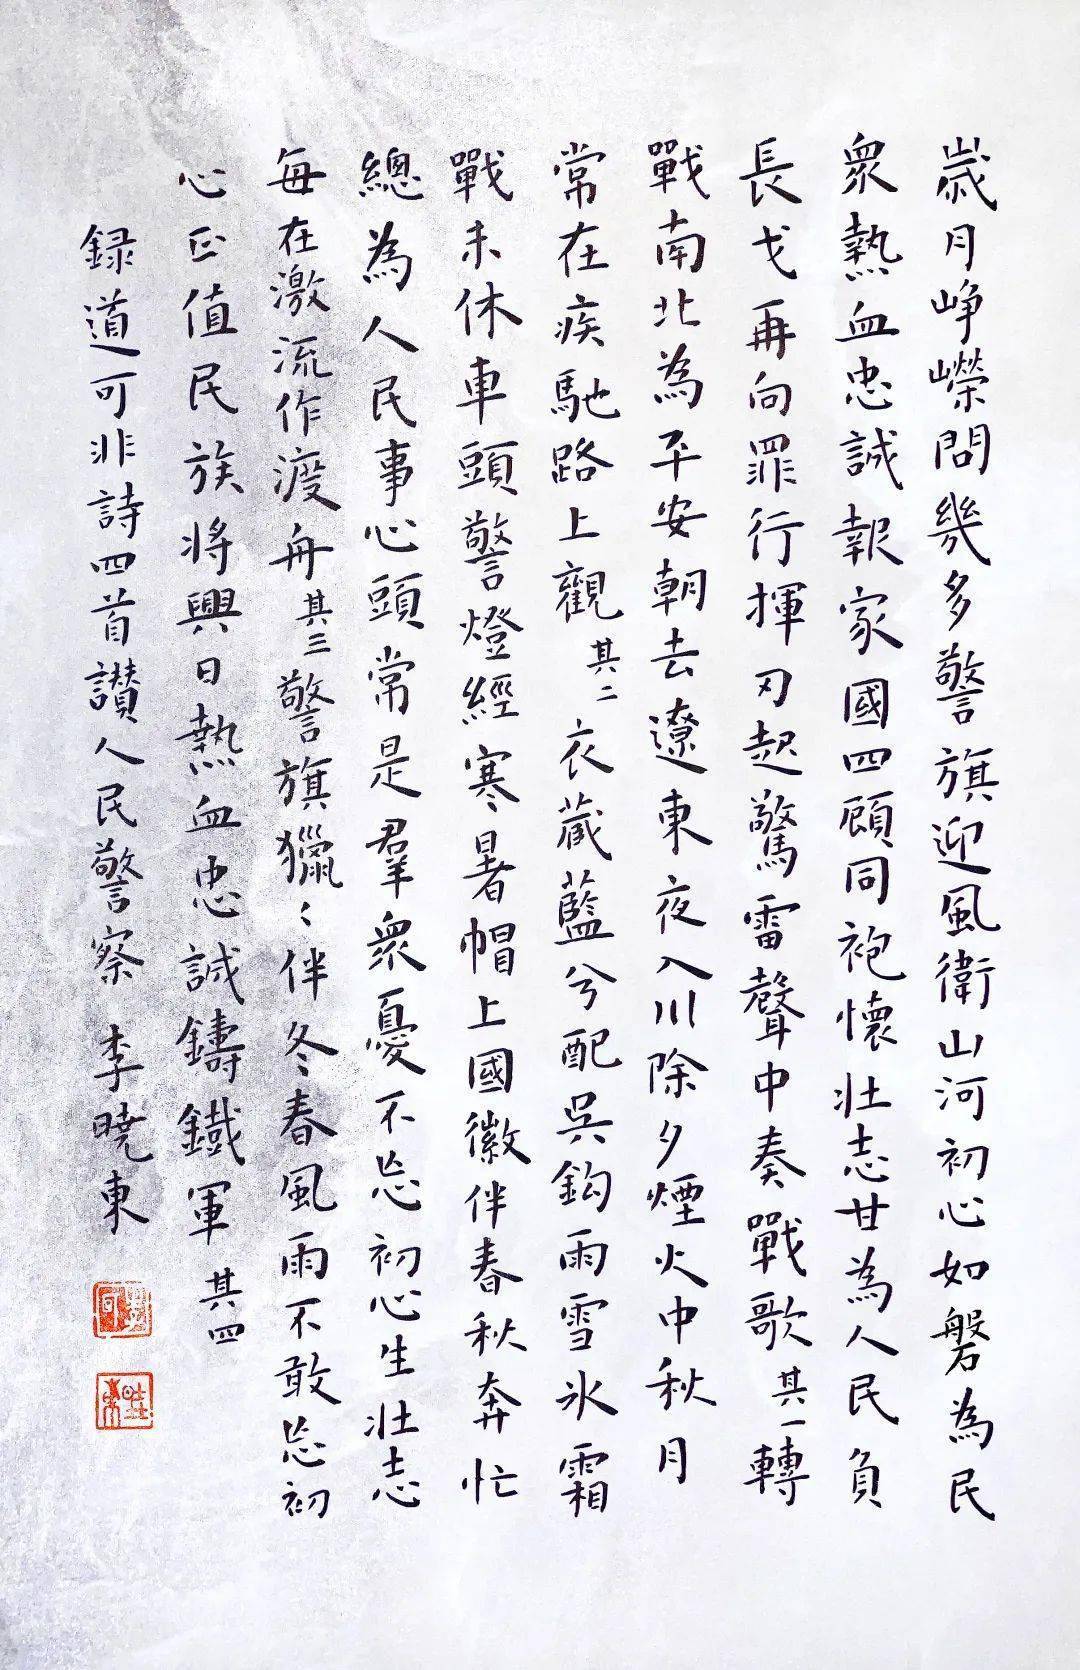 歲月崢嶸問幾多警旗迎風衛山河初心如磐為民
衆熱血忠誠報家國四顧同袍懷壯志甘為人民負
長戈再向罪行揮刃起驚雷聲中奏戰歌其一轉
戰南北為平安朝去遼東夜入川除夕煙火中秋月
常在疾馳路上觀其二衣藏藍兮配吳鈎雨雪冰霜
戰未休車頭警燈經寒暑帽上國徽伴春秋奔忙
總為人民事心頭常是羣衆憂不忘初心生壯志
每在激流作渡舟其三警旗獵〻伴冬春風雨不敢忘初
心正值民族將興日熱血忠誠鑄鐵軍其四
録道可非詩四首讃人民警察李曉東